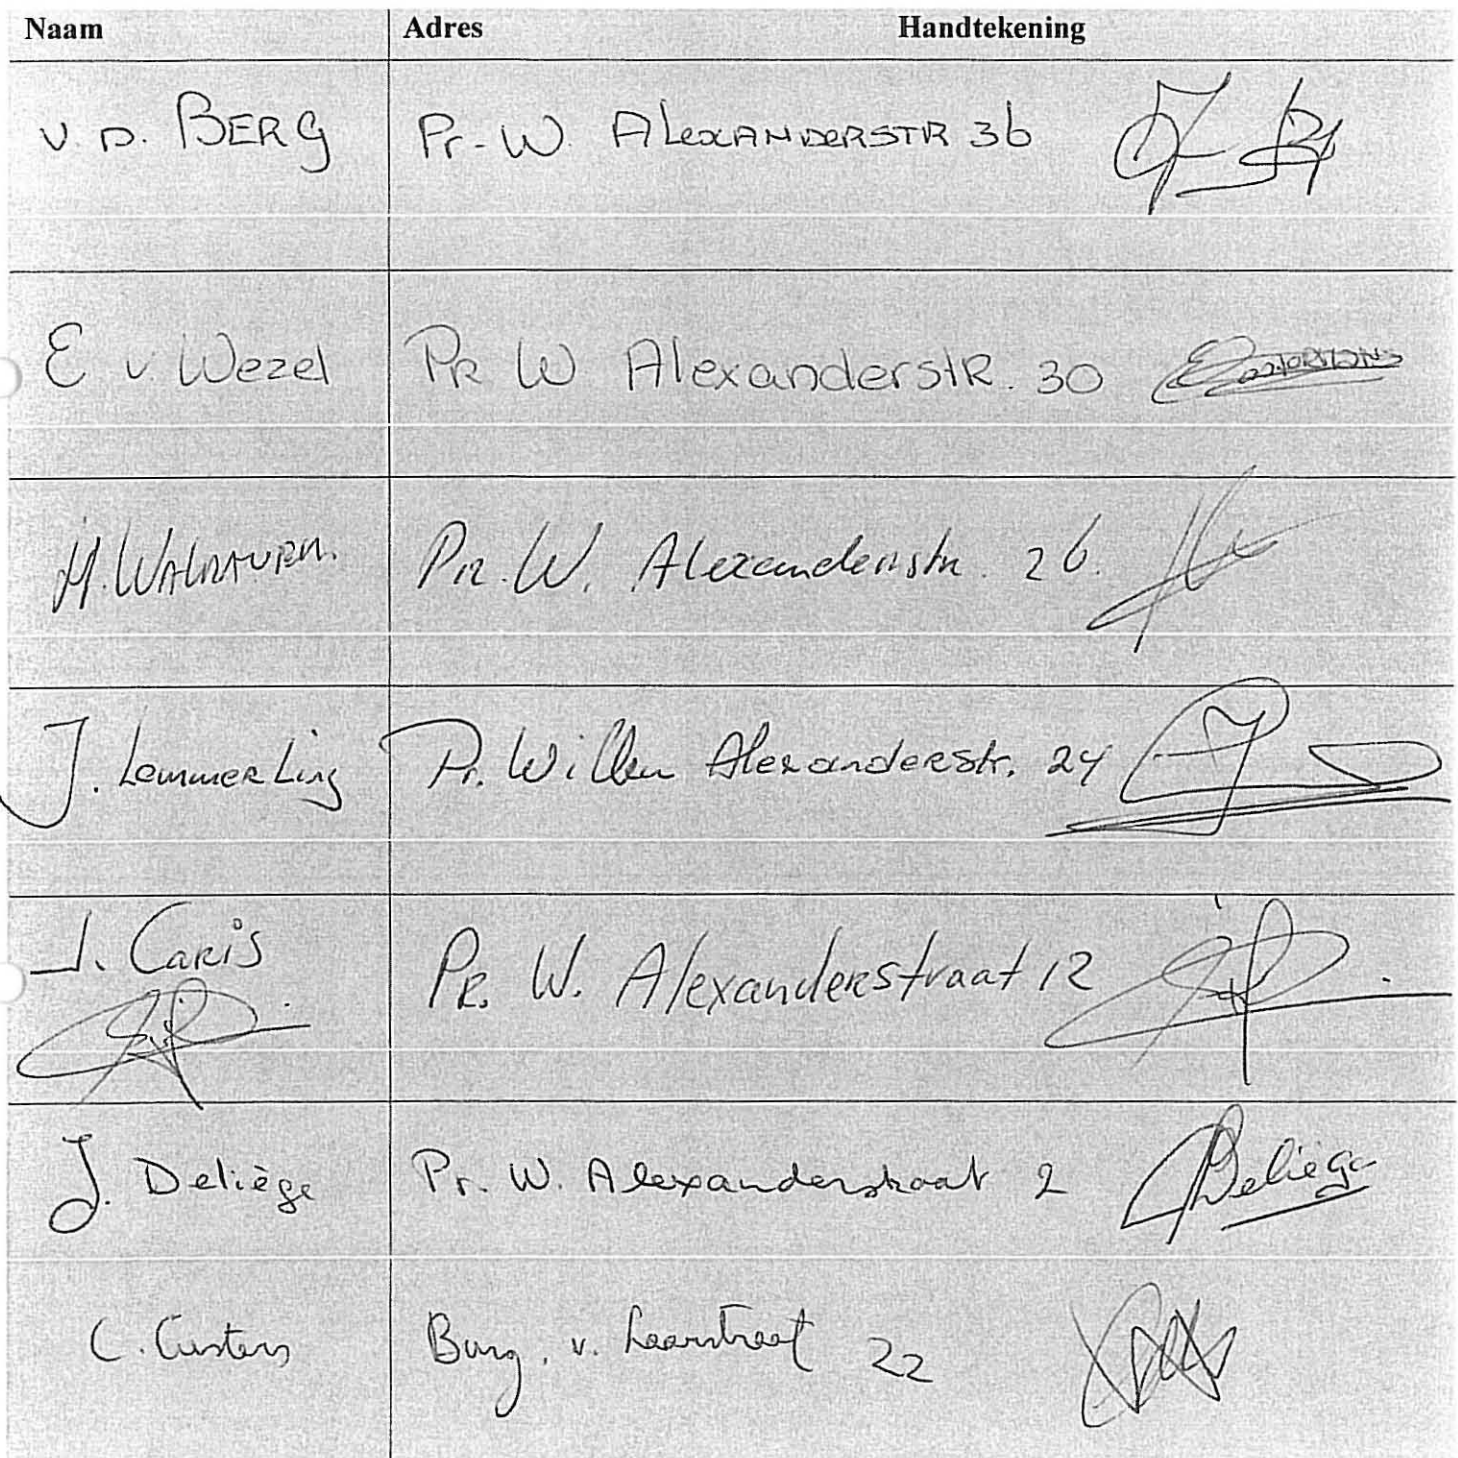 Naam Adres Handtekening
v. D. BERG Pr. W. ALEXANDERSTR 36
E v. Wezel PR W Alexanderstr. 30
H. Pr. W. Alexanderstr. 26.
J. Lemmerling Pr. Willem Alexanderstr. 24
J. Caris Pr. W. Alexanderstraat 12
J. Deliège Pr. W. Alexanderstraat 2 Deliège
C. Custers Burg. v. Laarstraat 22